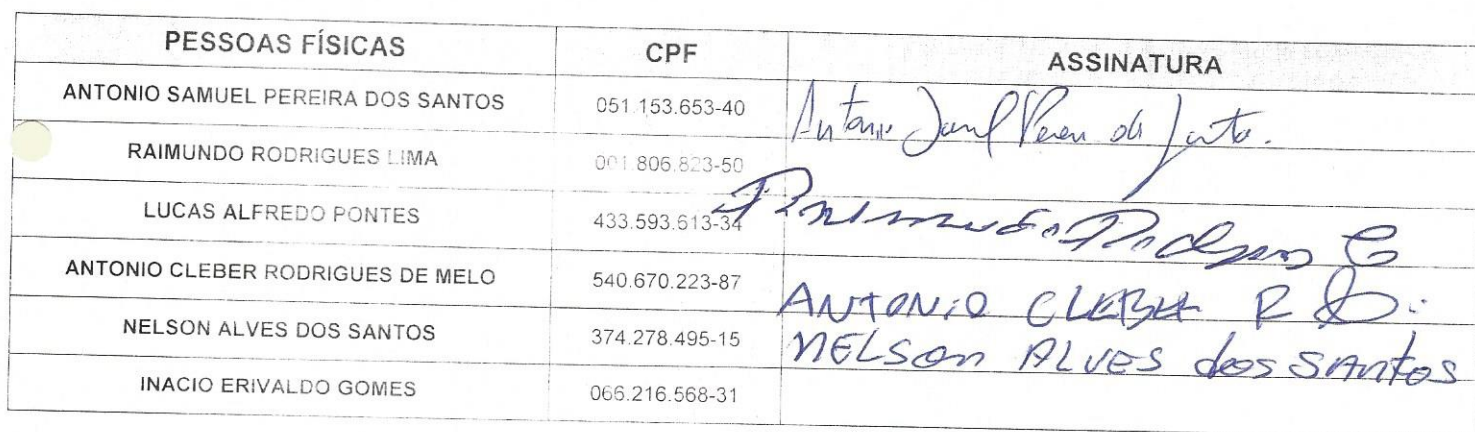 PESSOAS FÍSICAS CPF ASSINATURA
ANTONIO SAMUEL PEREIRA DOS SANTOS 051.153.653-40 Antonio Samuel Pereira dos Santos.
RAIMUNDO RODRIGUES LIMA 001.806.823-50
LUCAS ALFREDO PONTES 433.593.613-34 Raimundo Rodrigues
ANTONIO CLEBER RODRIGUES DE MELO 540.670.223-87 ANTONIO CLEBER R
NELSON ALVES DOS SANTOS 374.278.495-15 NELSON ALVES dos SANTOS
INACIO ERIVALDO GOMES 066.216.568-31